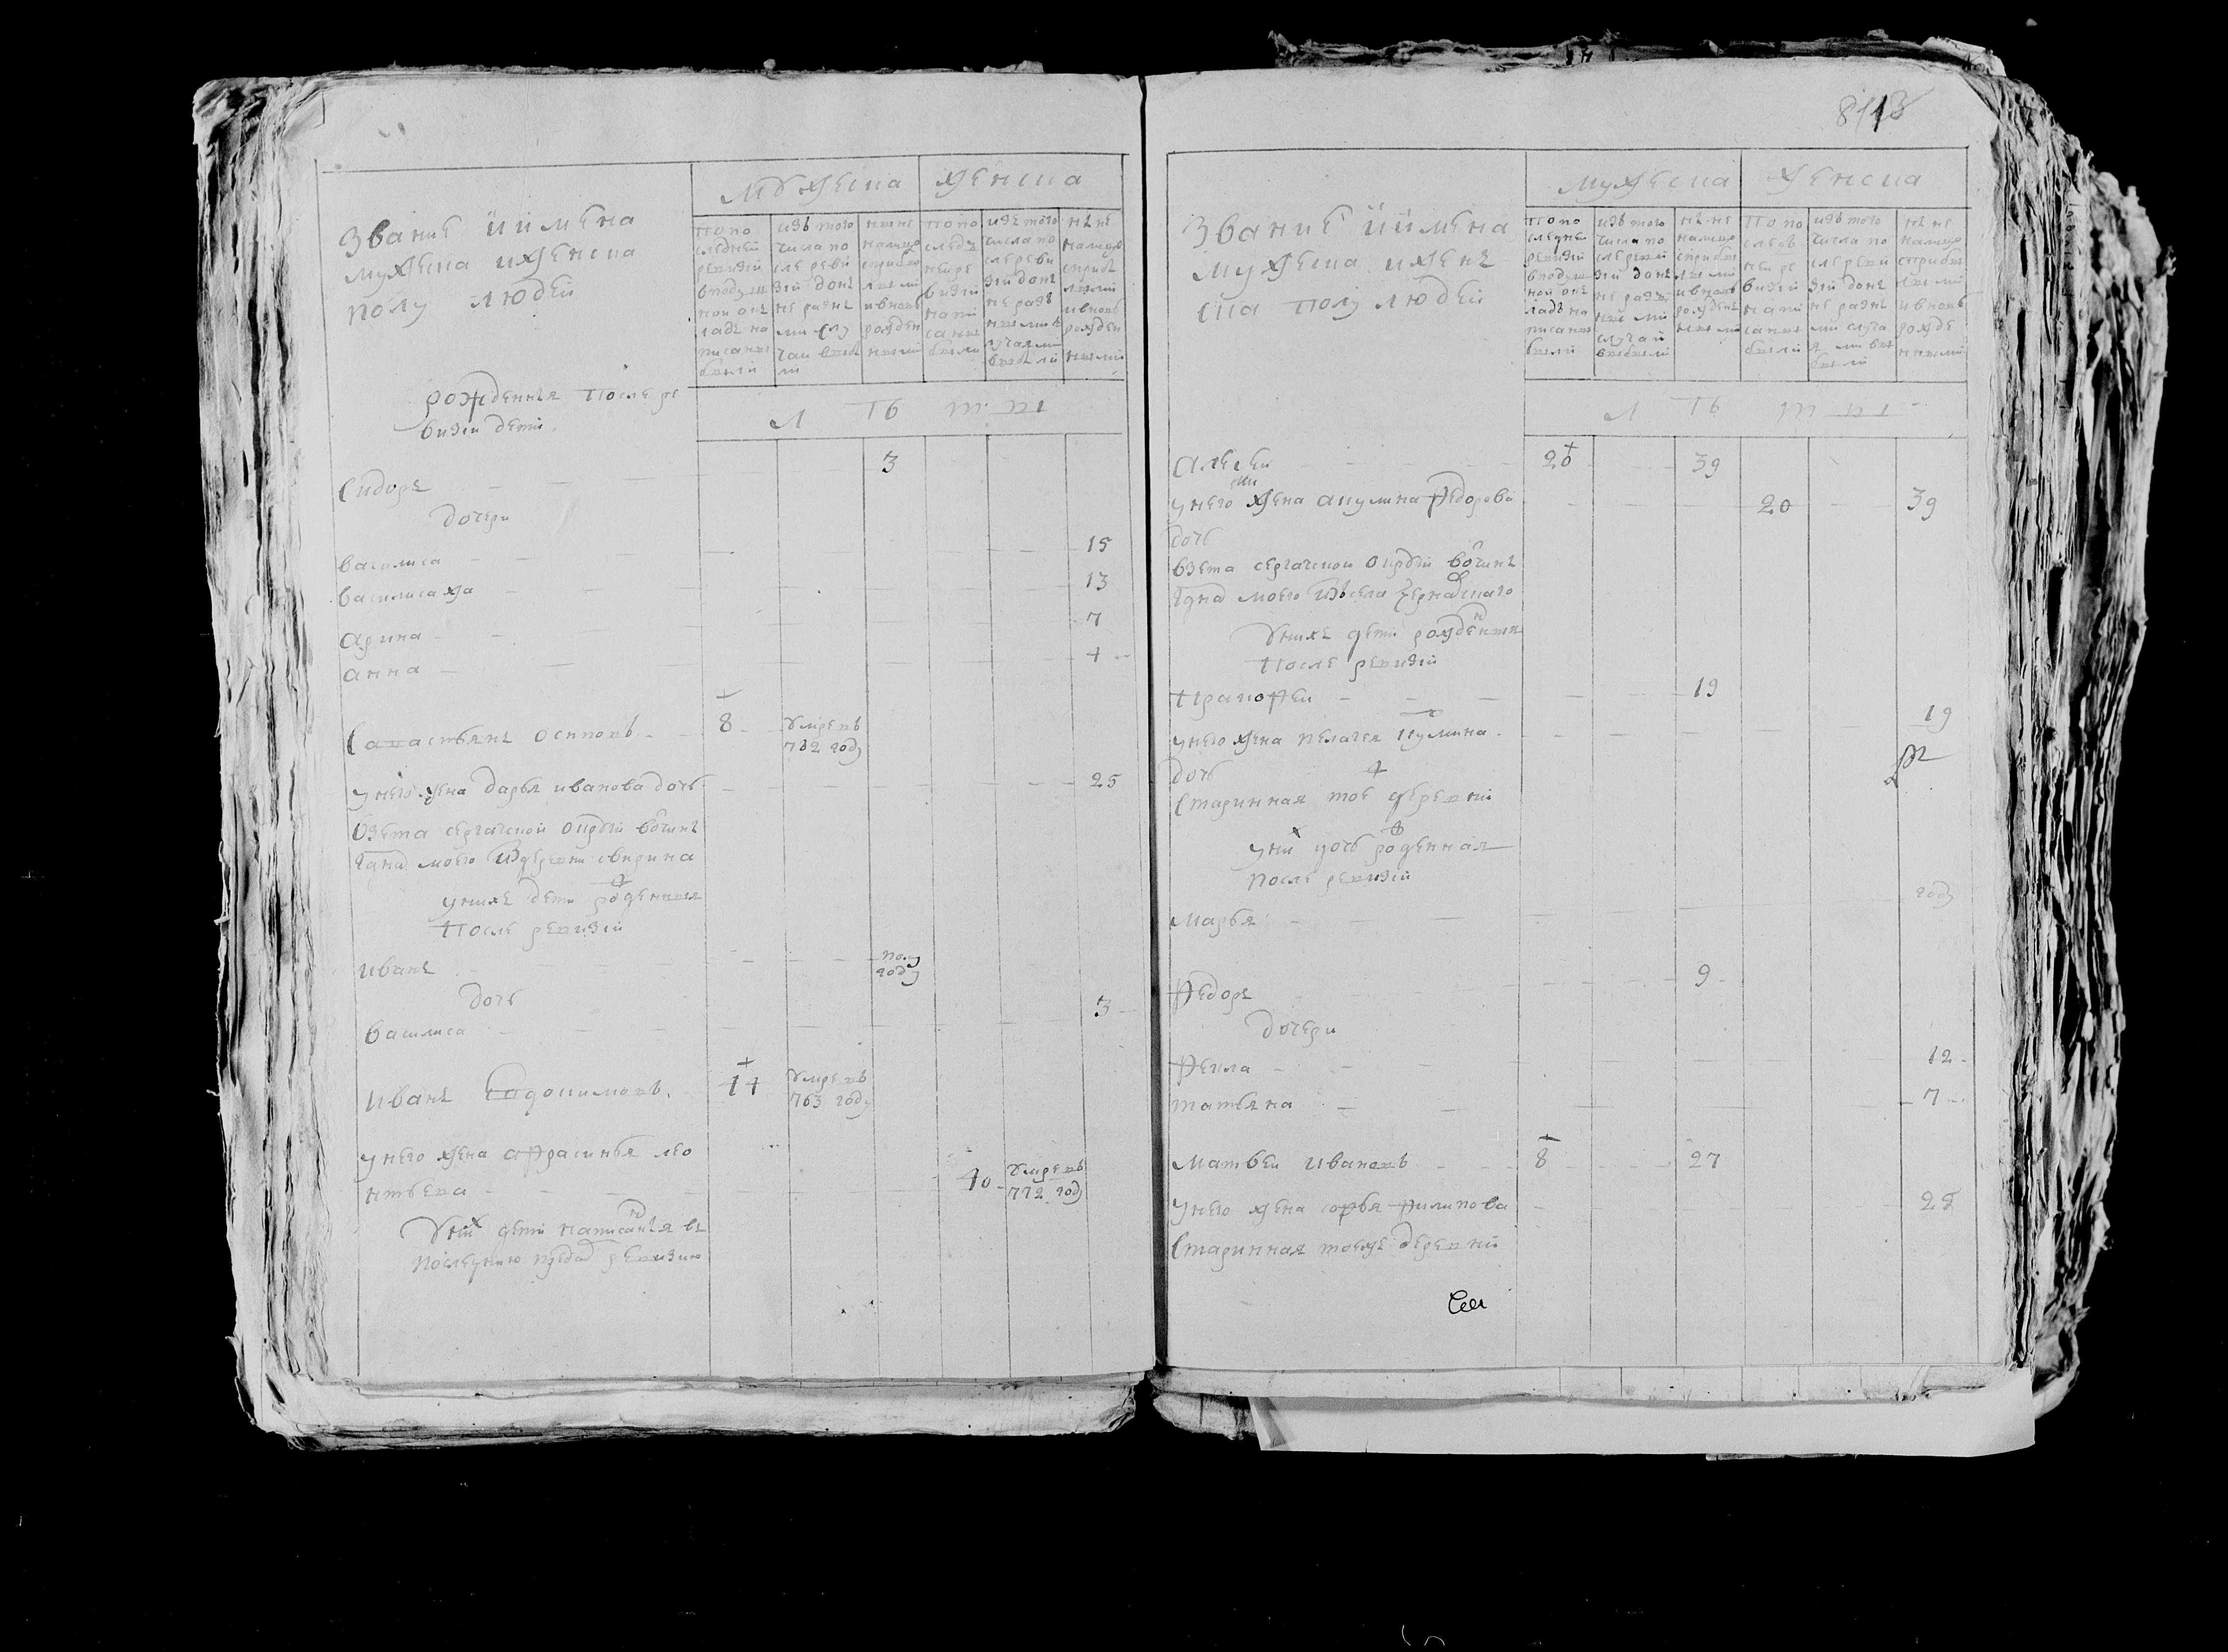 мужеска женска
Звание и имена
мужеска иженска
полу людей
по по
следней
ревизии
вподуш
ном ок
ладе на
писаны
были
изъ того
числа по
сле реви
зии до нъ
не разнъ
ми слу
чаи выбы
ли
ныне
налицо
сприбы
лыми
ивновь
рожден
ными
по по
следъ
ней ре
визии
напи
саны
были
изъ того
числа по
сле реви
зии до нъ
не разъ
ными с
лучаями
выбыли
нъне
налицо
спри бъ
лыми
ивновь
рожден
ными
рожденныя после ре
визии дети
Л Т Ъ
Сидоръ 3
дочери
василиса 15
василисажа 13
арина 7
анна 4
Савастьянъ осиповъ 8 умревъ
762 году
унего жена дарья иванова дочь 25
взета сергачской округи вочинъ
моего издеревни свирина
унихъ дети роденныя
после ревизии
иванъ полу
году
дочь
василиса 3
иванъ 14 умревъ
763 году
унего жена афрасинья лео
нтьева 40 умревъ
772 году
уних дети написаныя въ
последнюю ревизию
813
мужеска женска
Звание иимена
мужеска иженъ
ска полу людей
по по
следней
ревизии
вподуш
ной окъ
ладъ на
писаны
были
изъ того
числа по
сле реви
зии до нъ
не разъ
ныс ми
случаи
выбыли
нъ не
налицо
сприбы
лы ми
ивновь
рожденъ
ныс ми
по по
следъ
ней ре
визии
напи
саныс
были
изъ того
числа по
сле реви
зии до нъ
не разнъ
ми случа
я ми вы
были
нъ не
налицо
сприбы
лы ми
ивновь
рожде
нными
Л Т Ъ
алексеи 20 39
унего жена акулина федорова 20 39
дочь
взета сергачской округи вочинъ
моего изъ села
унихъ дети рожденныя
после ревизии
Прокофеи 19
унего жена пелагея кузмина 19
дочь
старинная тое деревни
уних дочь роденная
после ревизии
марья году
федоръ 9
дочери
фекла 12
татьяна 7
матвеи ивановъ 8 27
унего жена софья филипова 25
старинная тоежъ деревни